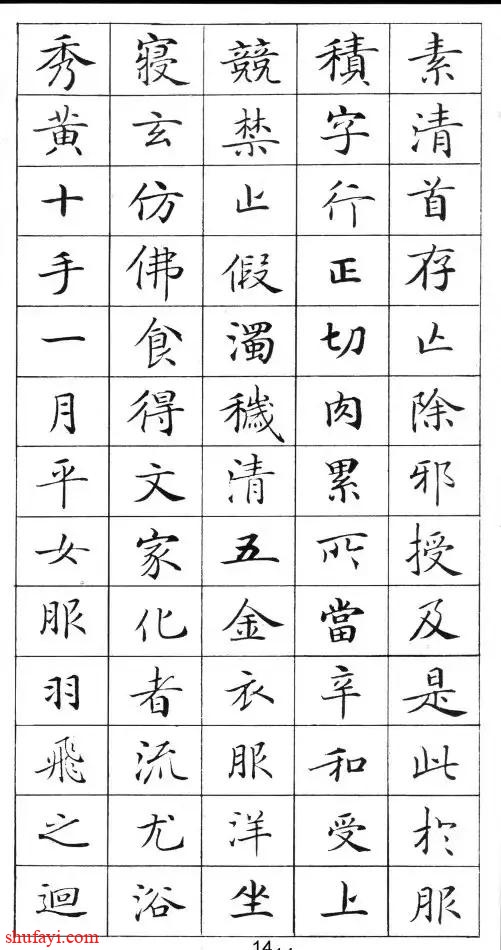 素清首存亾除邪授及是此於服
積字行正切肉累所當辛和受上
競禁止假濁穢清五金衣服洋坐
寢玄仿佛食得文家化者流尤浴
秀黄十手一月平女服羽飛之迴
shufayi.com
14